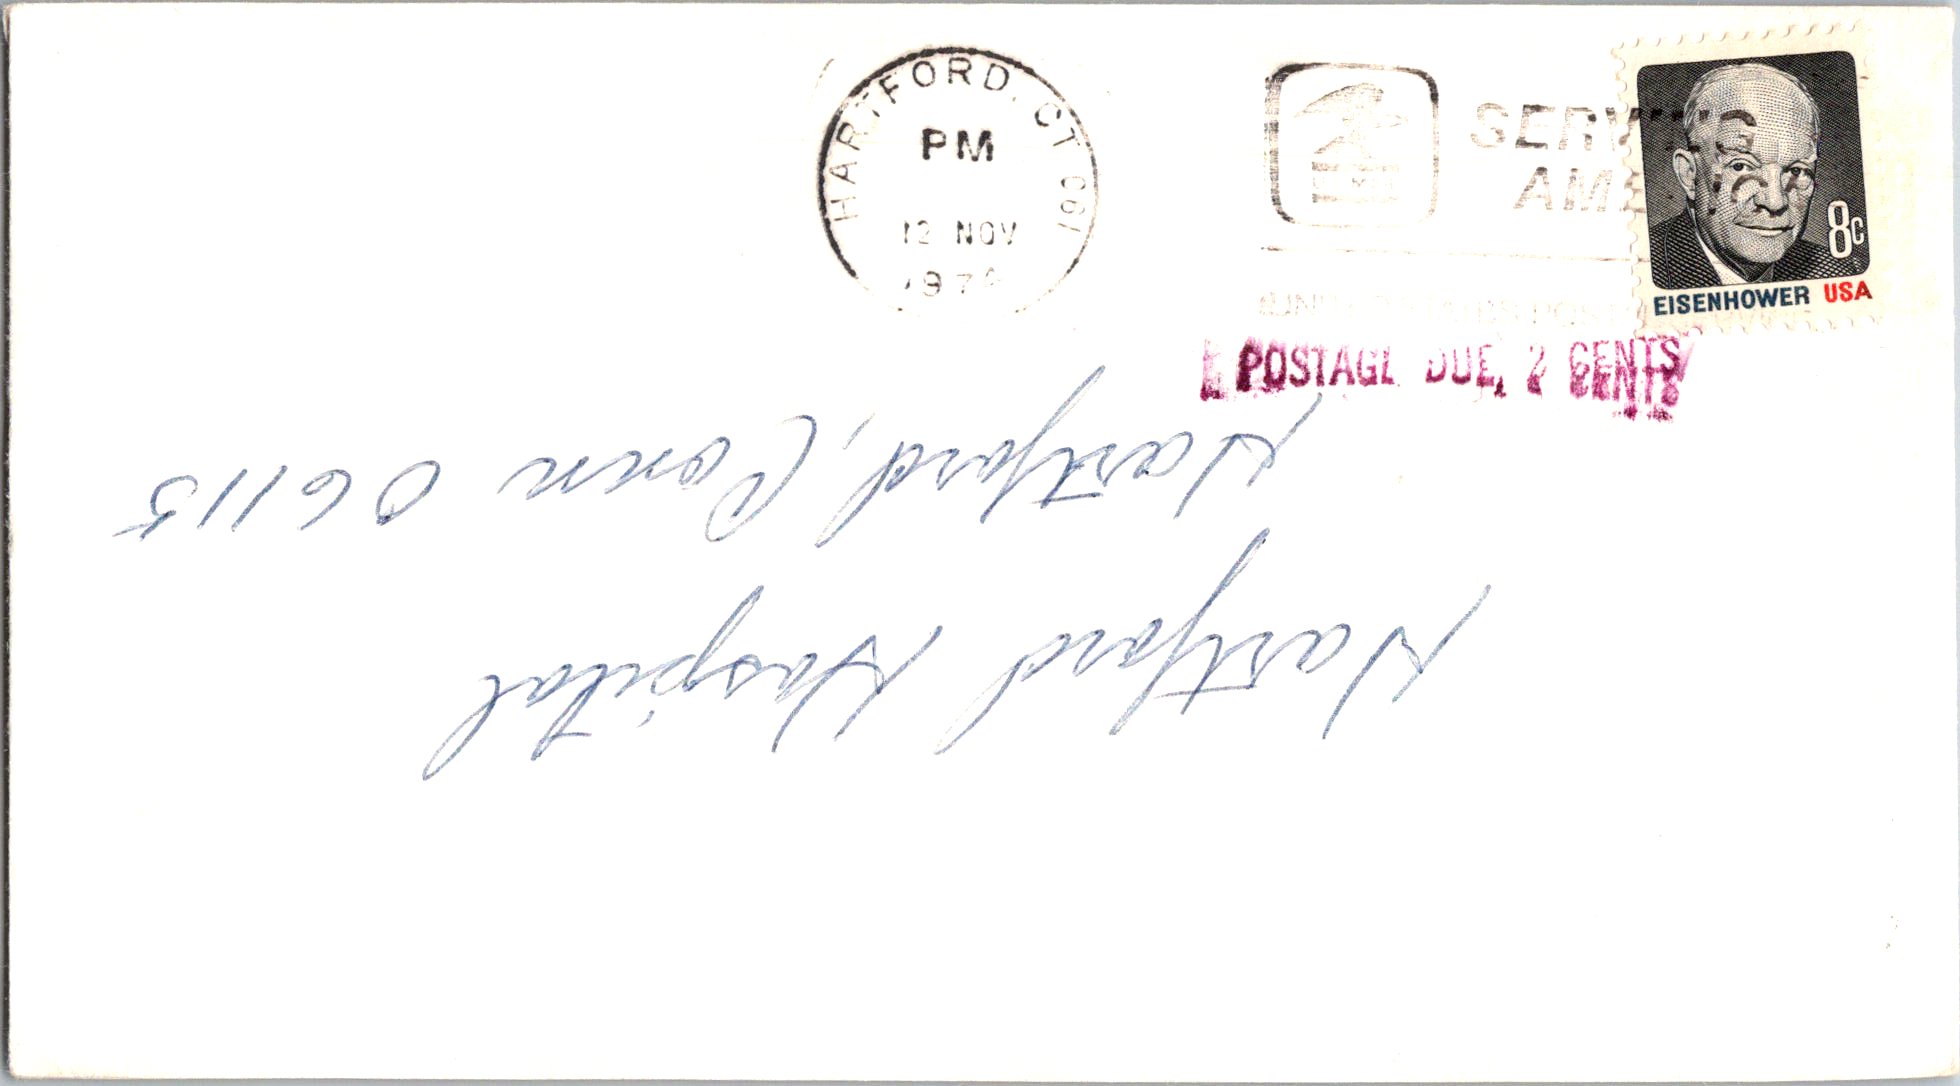 HARTFORD, CT 061
PM
12 NOV
SERVING
AMERICA
8c
EISENHOWER USA
POSTAGE DUE, 2 CENTS
Hartford Hospital
Hartford, Conn 06115